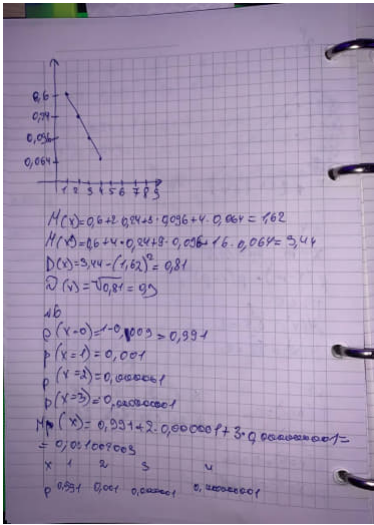 0,6
0,24
0,096
0,064
1 2 3 4 5 6 7 8 9
M(x)=0,6+2·0,24+3·0,096+4·0,064=1,62
M(x²)=0,6+4·0,24+9·0,096+16·0,064=3,44
D(x)=3,44-(1,62)²=0,81
(x)=√0,81=0,9
№6
p(x=0)=1-0,009=0,991
p(x=1)=0,001
p(x=2)=0,000001
p(x=3)=0,000000001
(x)=0,991+2·0,000001+3·0,000000001=
=0,091007003
x 1 2 3 4
p 0,991 0,001